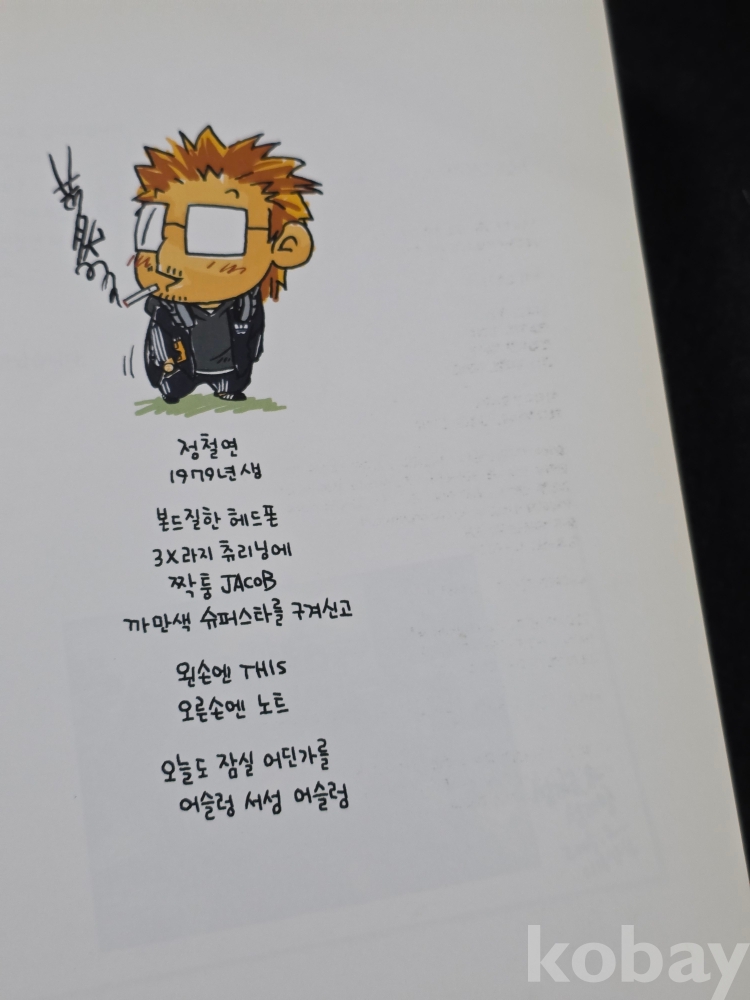 정철연
1979년생
본드질한 헤드폰
3X라지 츄리닝에
짝퉁 JACOB
까만색 슈퍼스타를 구겨신고
왼손엔 THIS
오른손엔 노트
오늘도 잠실 어딘가를
어슬렁 서성 어슬렁
kobay